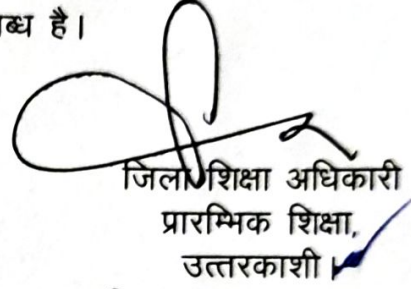 है।
जिला शिक्षा अधिकारी
प्रारम्भिक शिक्षा,
उत्तरकाशी।